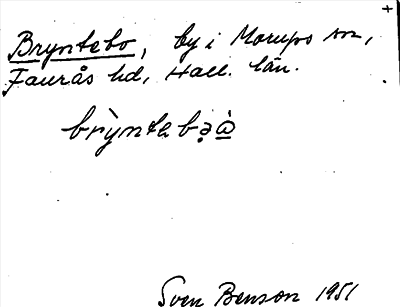 +
Bryntebo, by i Morups sn,
Faurås hd, Hall. län.
brỳntebạò̲
Sven Benson 1951